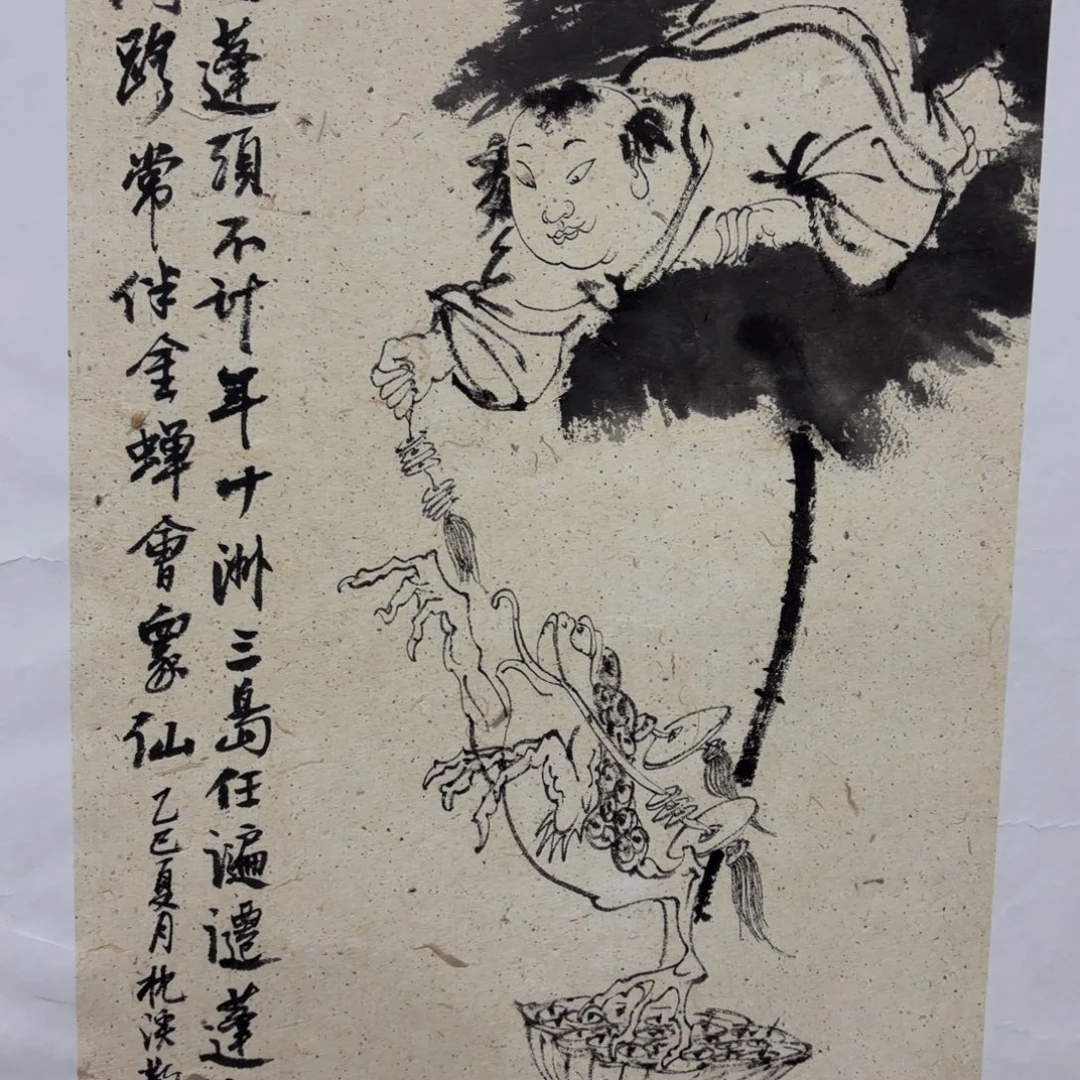 蓬頭不計年十洲三島任遍遷蓬
路常伴金蟬會眾仙
乙巳夏月